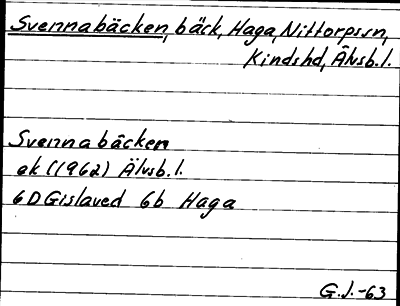 Svennabäcken, bäck, Haga, Nittorpssn,
Kindshd, Älvsb.l.
Svennabäcken
ek (1962) Älvsb.l.
6D Gislaved 6b Haga
G.J.-63